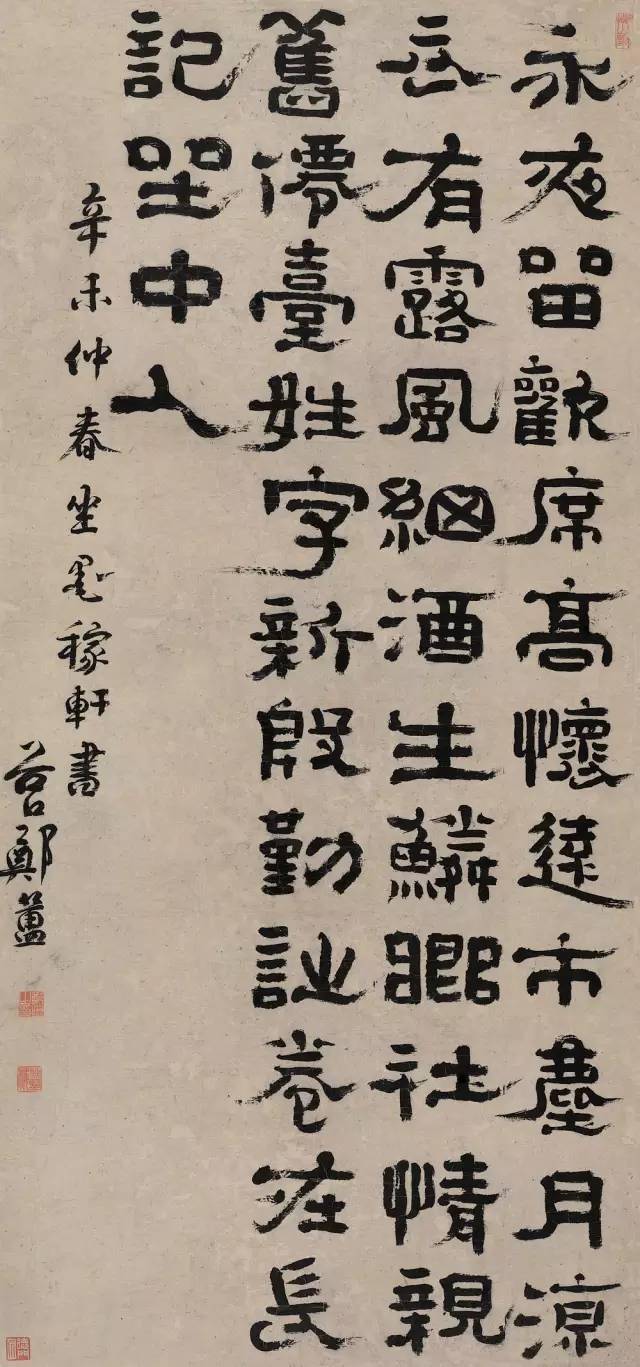 永夜留歡席高懷遠市塵月涼
衣有露風細酒生鱗鄉社情親
舊僊臺姓字新殷勤誌卷在長
記坐中人
辛未仲春坐墨稼軒書
谷口鄭簠